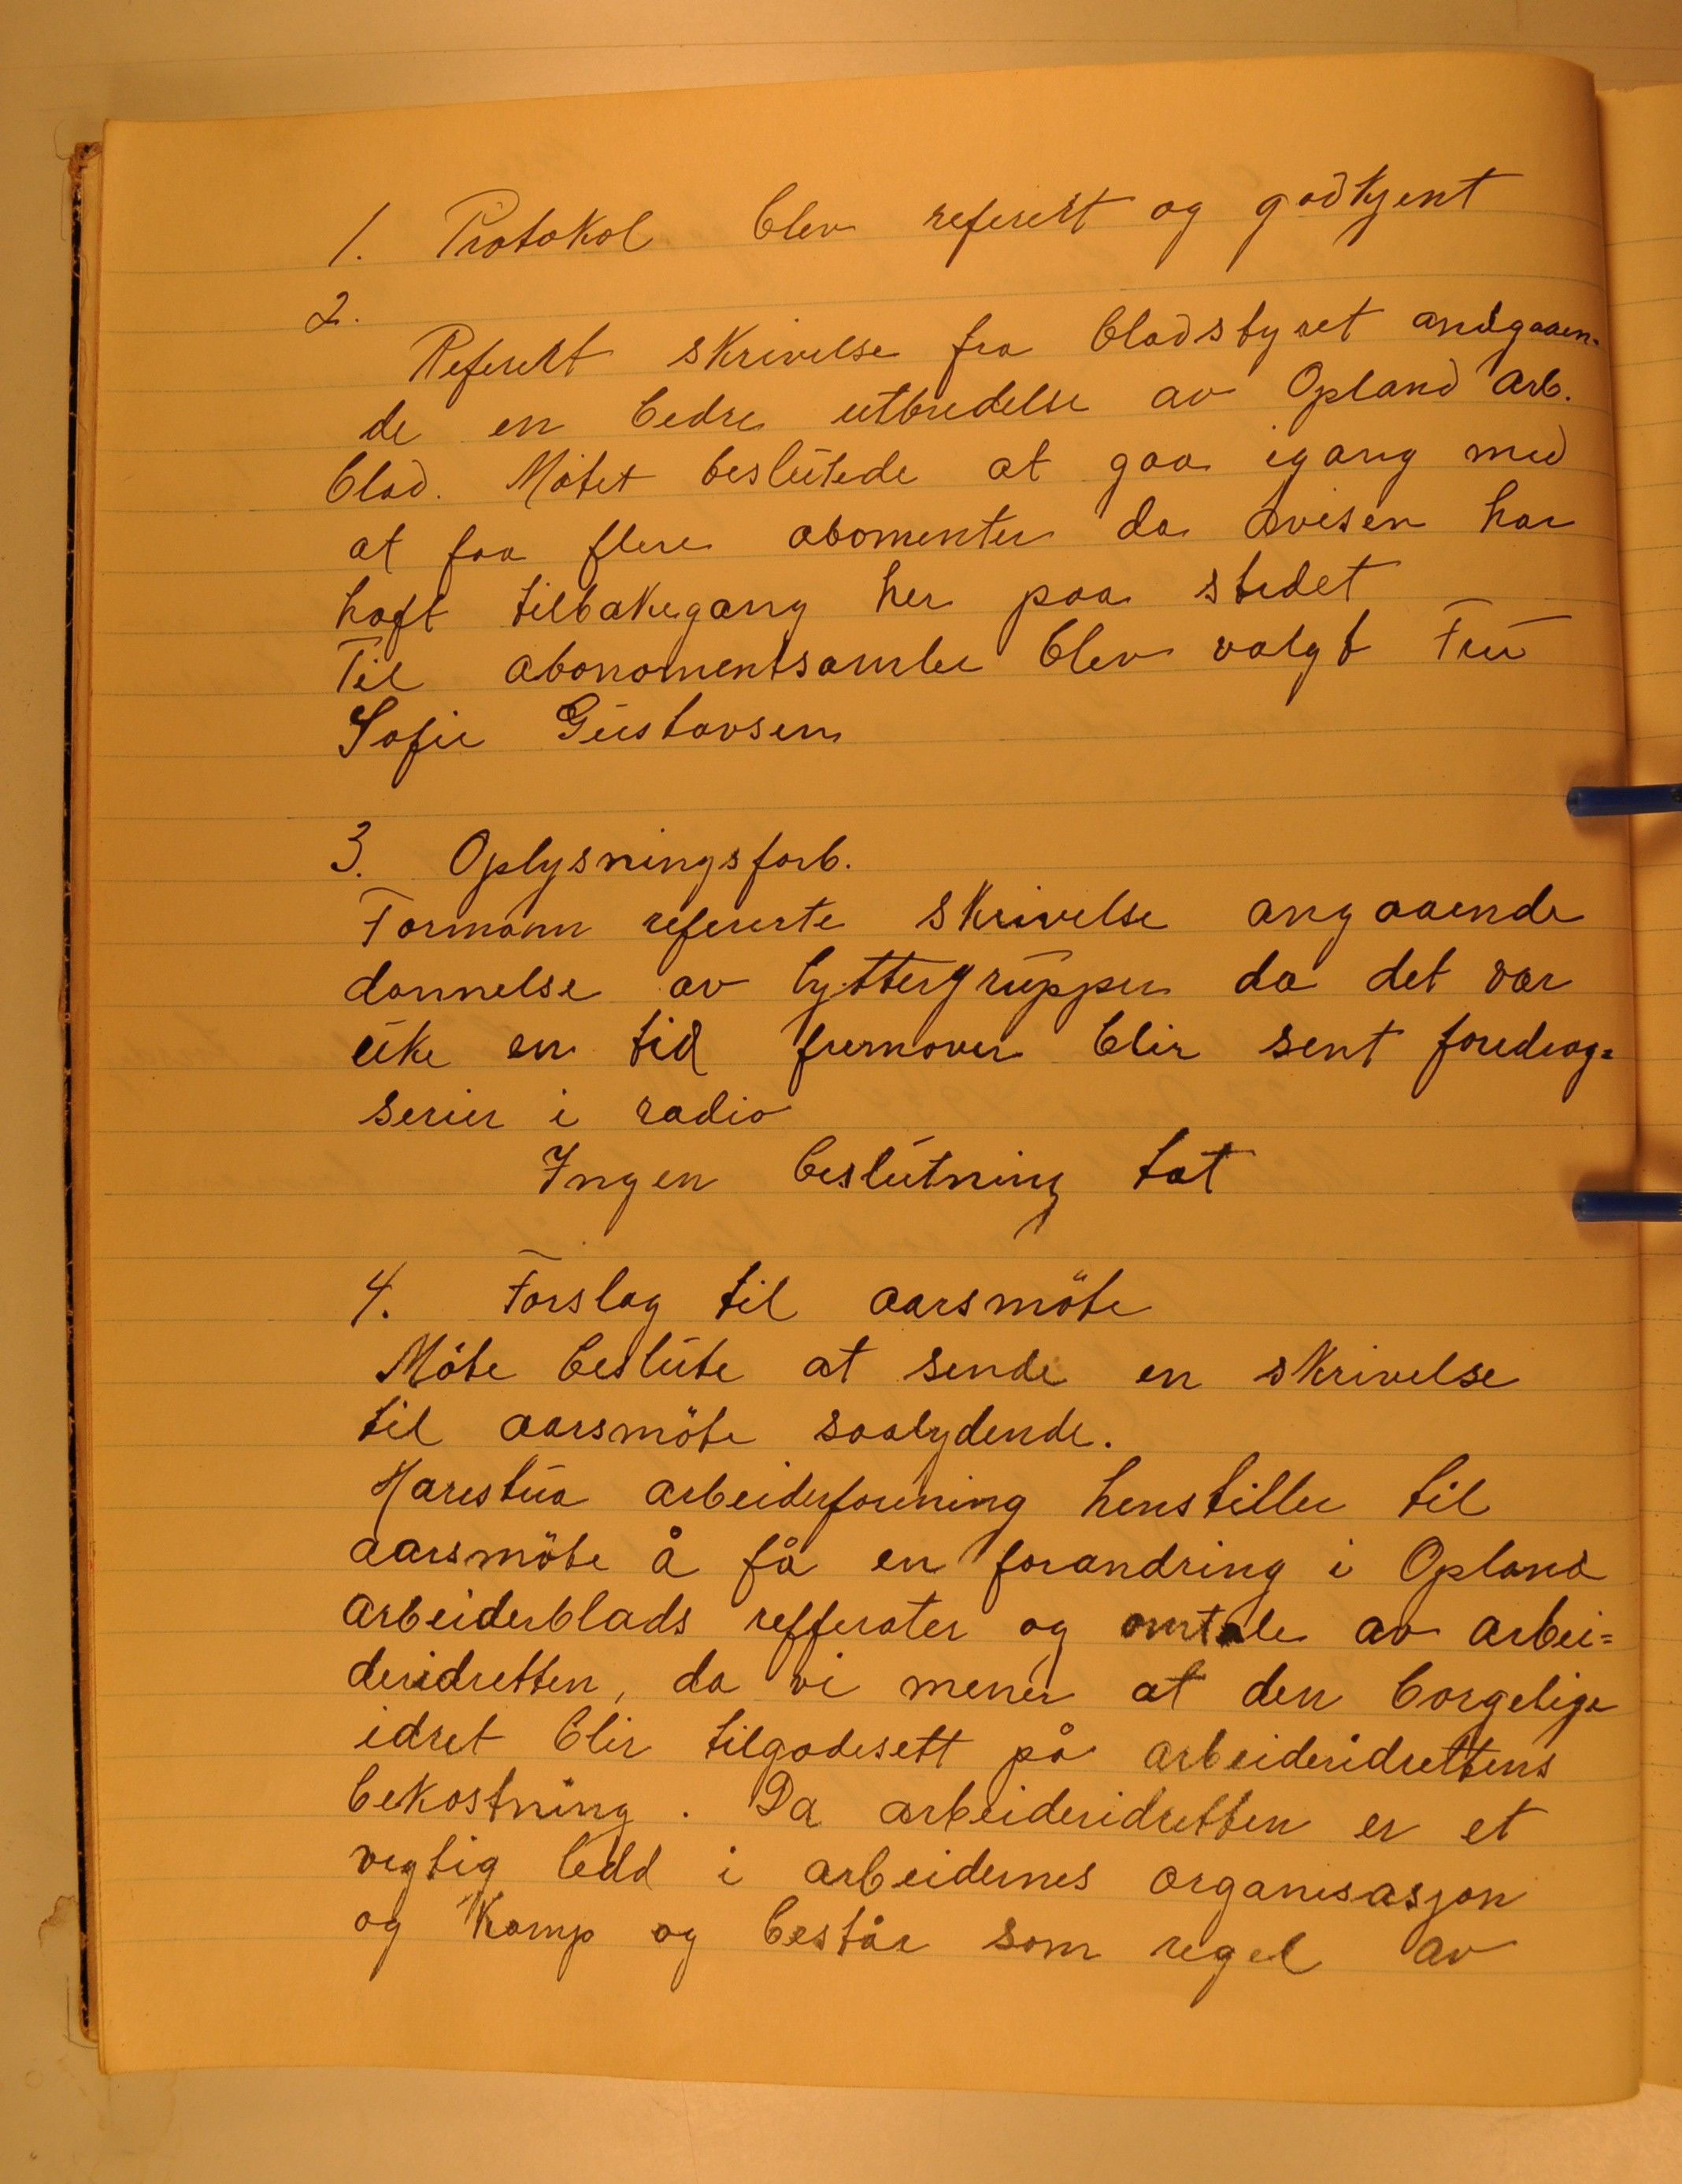 1. Protokol blev referert og godkjent
2.
Referert skrivelse fra bladstyret andgaaen-
de en bedre utbredelse av Opland Arb.
blad. Møtet beslutede at gaa igang med
at faa flere abomenter da avisen har
haft tilbakegang her paa stedet
Til abonomentsamler blev valgt Fru
Sofie Gustavsen
3. Oplysningsforb.
Formann refererte skrivelse angaaende
dannelse av lyttergrupper da det var
uke en tid fremover blir sent foredrag=
serier i radio
Ingen beslutning tat
4. Forslag til aarsmöte
Möte beslute at sende en skrivelse
til aarsmöte saalydende.
Harestua arbeiderforening henstiller til
aarsmöte å få en forandring i Opland
Arbeiderblads refferater og omtale av arbei=
deridretten, da vi mener at den borgelige
idret blir tilgodesett på arbeideridrettens
bekostning. Da arbeideridretten er et
vegtig ledd i arbeidernes organisasjon
og kamp og består som regel av